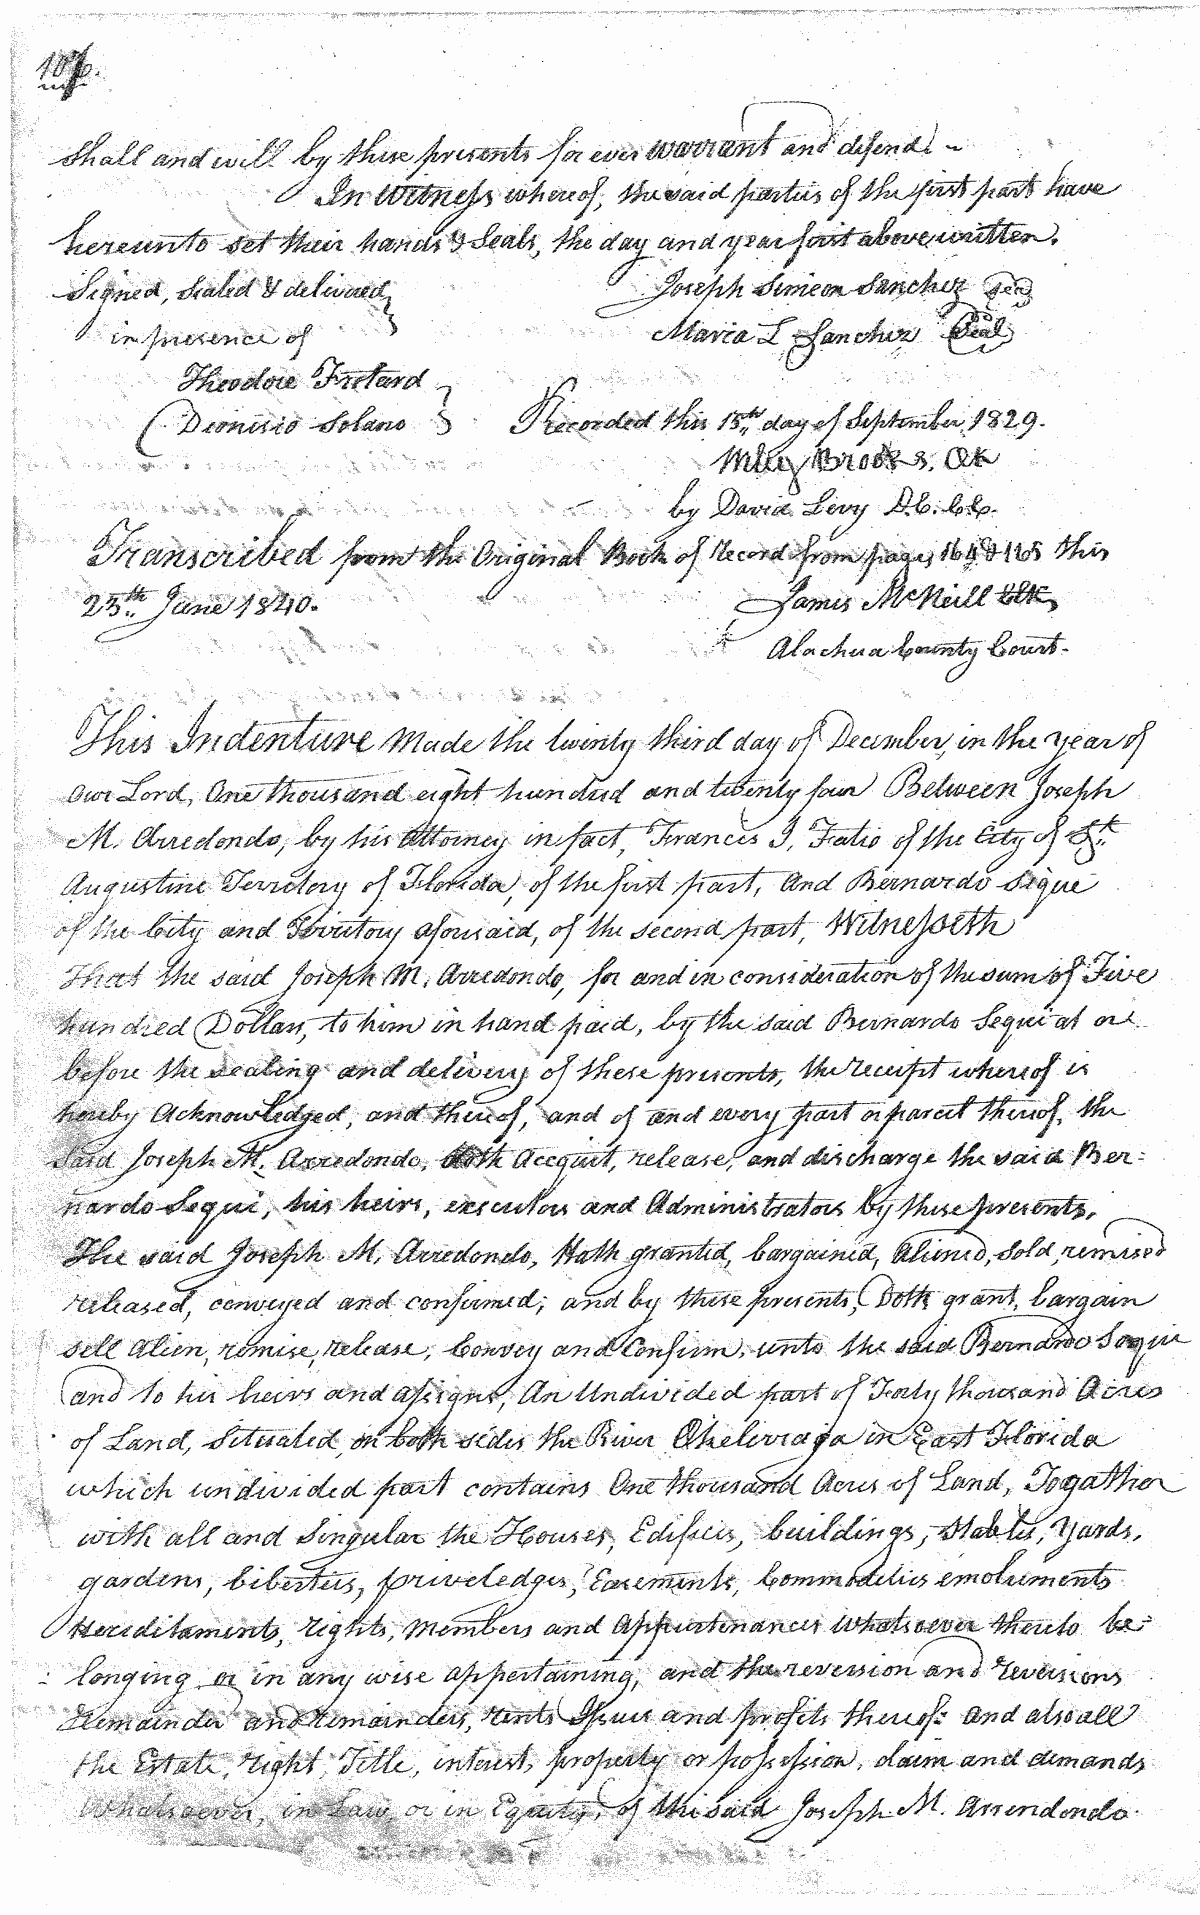 shall and will by these presents for ever warrant and defend. ~
In Witness whereof, the said parties of the first part have
hereunto set their hands & Seals, the day and year first above written.
Signed, sealed & delivered Joseph Simeon Sanchez seal
in presence of Maria L Sanchez Seal
Theodore Fretard
Dionisio Solano Recorded this 15th day of September, 1829.
Wiley Brooks. Clk
by David Levy D.C. Clk.
Transcribed from the Original Book of record from pages 164 & 165 this
25th June 1840. James McNeill Clk
Alachua County Court.
This Indenture Made the twenty third day of December, in the year of
our Lord, One thousand eight hundred and twenty four Between Joseph
M. Arredondo, by his Attorney in fact, Frances J. Fatio of the City of St.
Augustine Territory of Florida, of the first part, And Bernardo Sequi
of the City and Territory aforesaid, of the second part, Witnesseth
That the said Joseph M. Arredondo, for and in consideration of the sum of Five
hundred Dollars, to him in hand paid, by the said Bernardo Sequi at or
before the sealing and delivery of these presents, the receipt whereof is
hereby Acknowledged, and thereof, and of and every part or parcel thereof, the
Said Joseph M. Arredondo, doth Accquit, release, and discharge the said Ber-
nardo Sequi, his heirs, executors and Administrators by these presents.
The said Joseph M. Arredondo, Hath granted, bargained, aliened, sold, remised
released, conveyed and confirmed; and by these presents, Doth grant, bargain
sell Alien, remise, release, Convey and Confirm, unto the said Bernardo Sequi
and to his heirs and assigns, An Undivided part of Forty thousand Acres
of Land, situated on both sides the River in East Florida
which undivided part contains One thousand Acres of Land, Togather
with all and Singular the Houses, Edifices, buildings, stables, yards,
gardens, liberties, priveledges, Easements, Commodities emoluments
Hereditaments, rights, Members and Appurtenances whatsoever thereto be-
longing or in any wise appertaining, and the reversion and reversions
Remainder and remainders, rents Issues and profits thereof: and also all
the Estate, right, Title, interest, property or possession, claim and demands
Whatsoever, in Law or in Equity, of the said Joseph M. Arrendondo